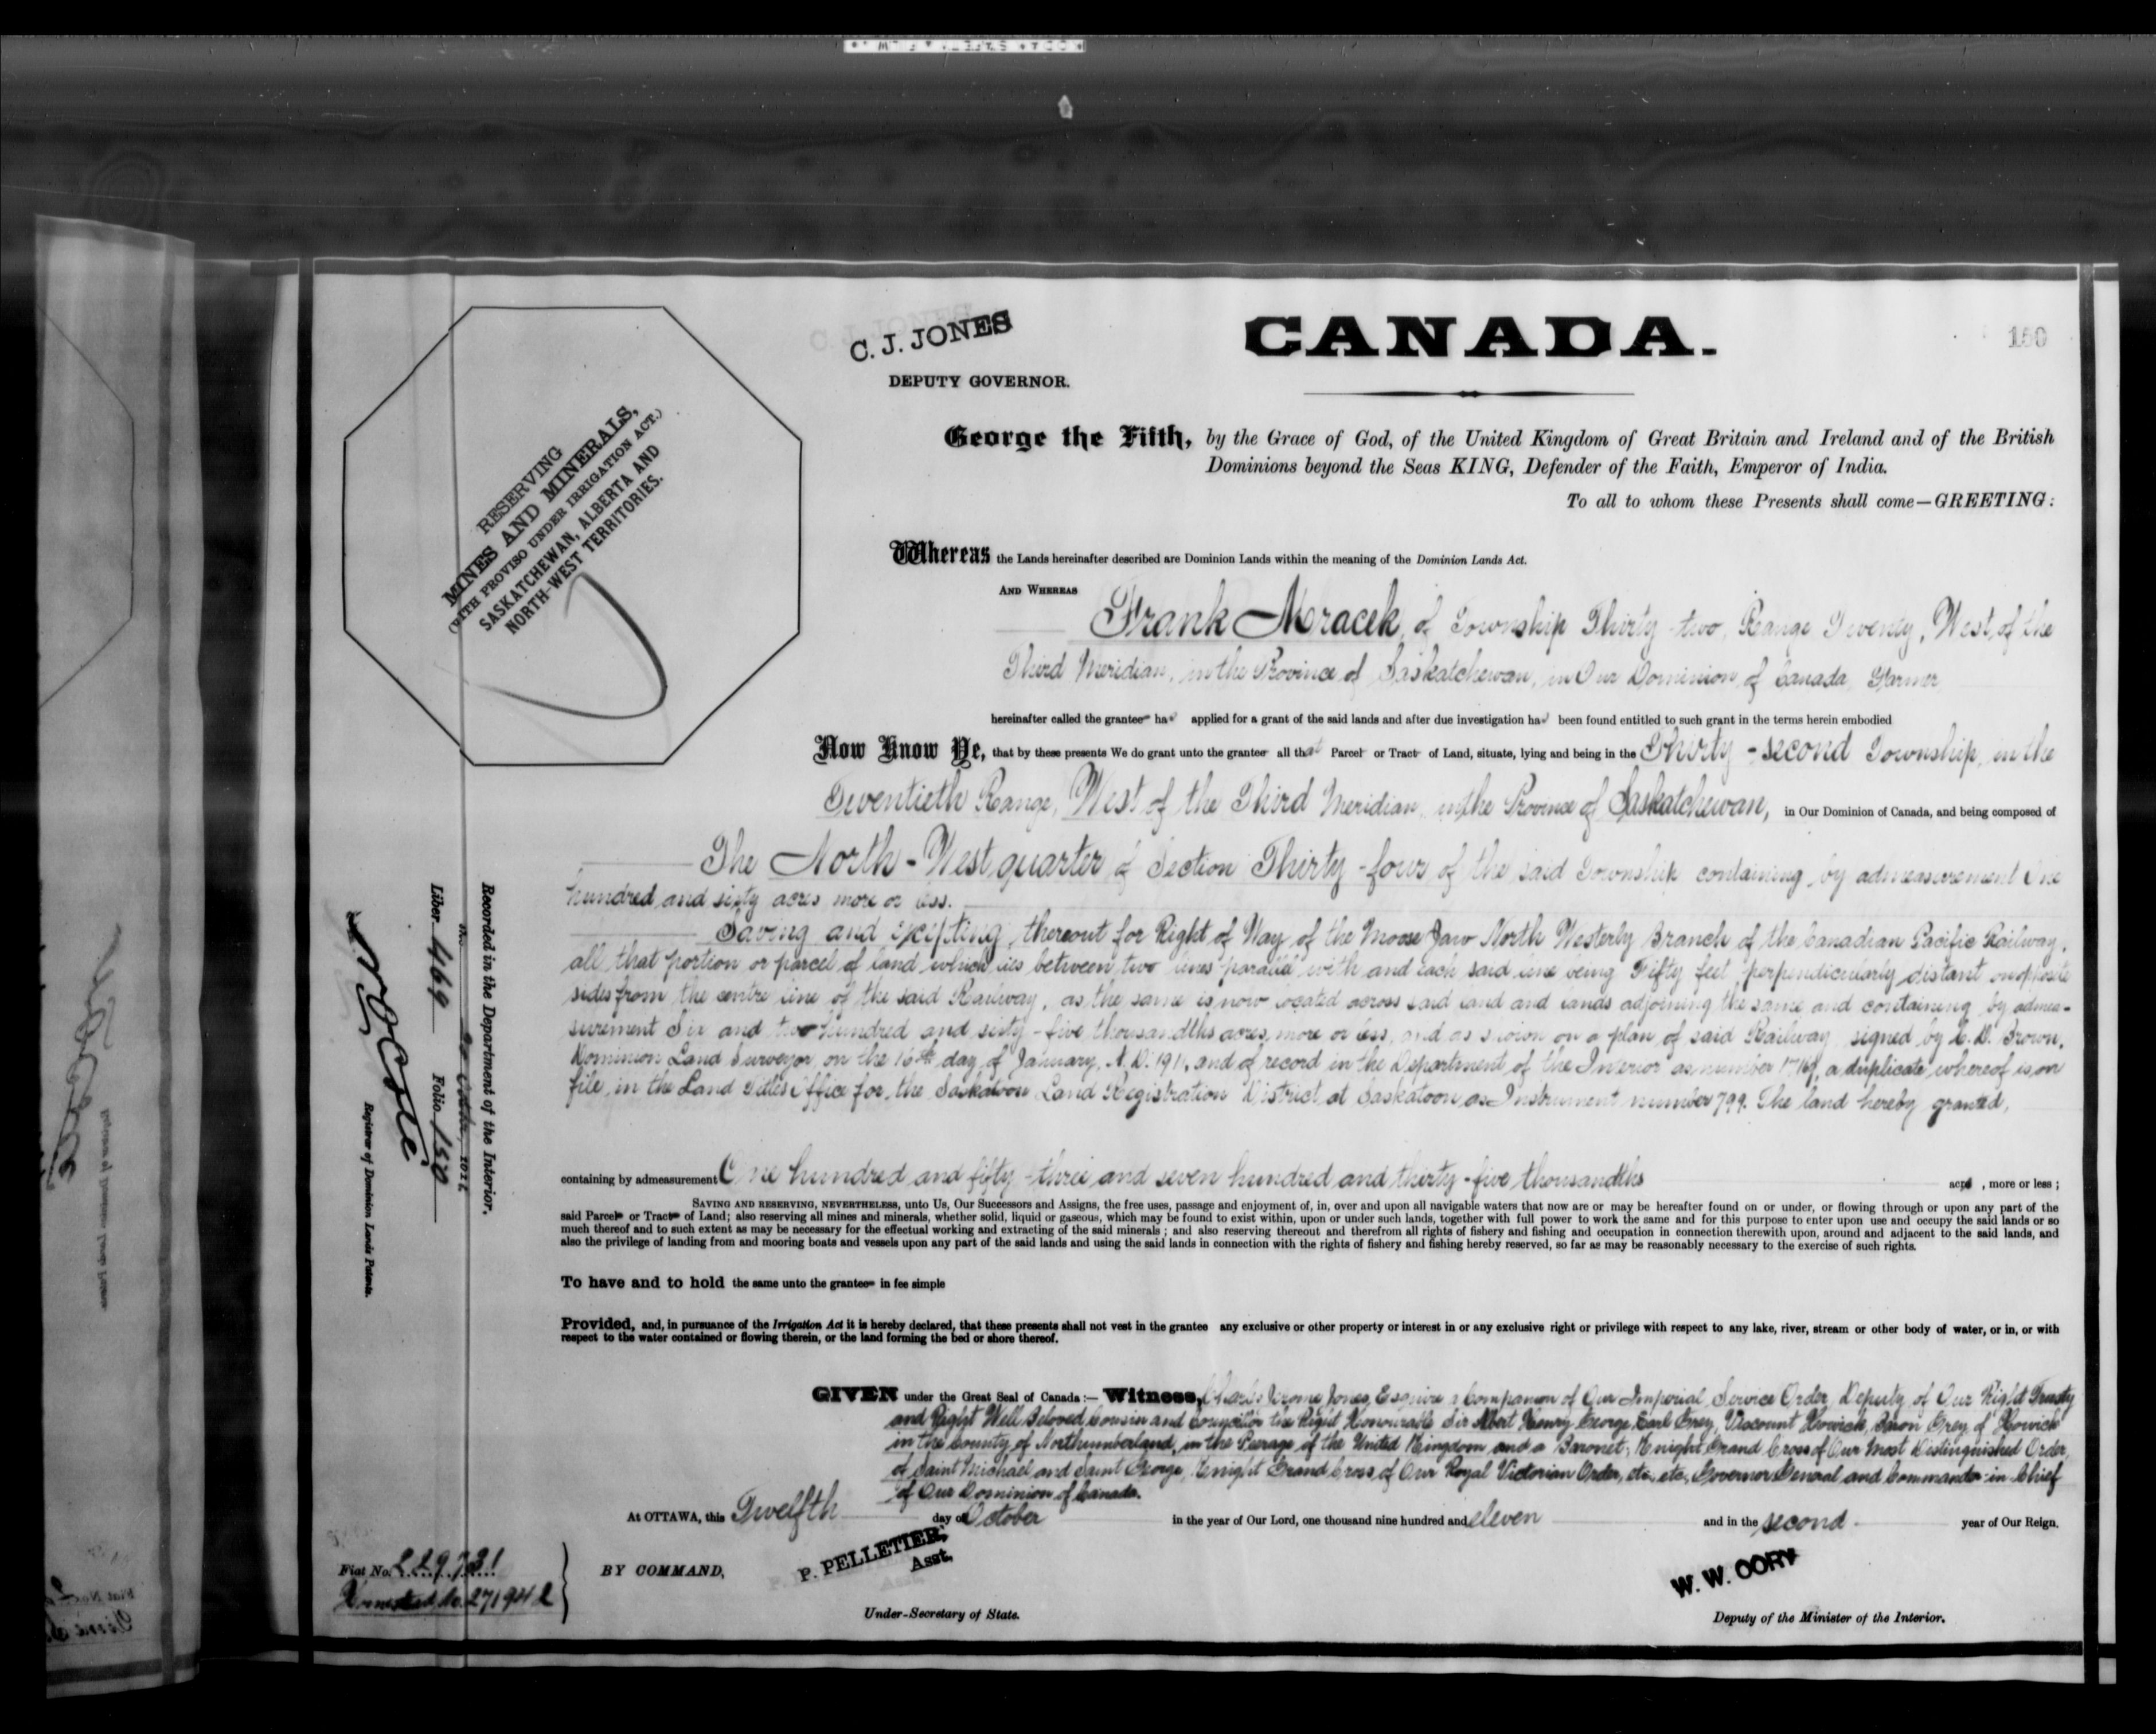 C. J. JONES
DEPUTY GOVERNOR.
CANADA.
150
RESERVING
MINES AND MINERALS,
(WITH PROVISO UNDER IRRIGATION ACT.)
SASKATCHEWAN, ALBERTA AND
NORTH-WEST TERRITORIES.
George the Fifth, by the Grace of God, of the United Kingdom of Great Britain and Ireland and of the British
Dominions beyond the Seas KING, Defender of the Faith, Emperor of India.
To all to whom these Presents shall come—GREETING:
Whereas the Lands hereinafter described are Dominion Lands within the meaning of the Dominion Lands Act.
AND WHEREAS
Frank Mracek, of Township Thirty-two, Range Twenty, West of the
Third Meridian, in the Province of Saskatchewan, in Our Dominion of Canada, Farmer
hereinafter called the grantee has applied for a grant of the said lands and after due investigation has been found entitled to such grant in the terms herein embodied
Now Know Ye, that by these presents We do grant unto the grantee all that Parcel or Tract of Land, situate, lying and being in the Thirty-second Township, in the
Twentieth Range, West of the Third Meridian, in the Province of Saskatchewan, in Our Dominion of Canada, and being composed of
The North-West quarter of Section Thirty-four of the said Township containing by admeasurement One
hundred and sixty acres more or less.
Saving and Excepting, thereout for Right of Way of the Moose Jaw North Westerly Branch of the Canadian Pacific Railway,
all that portion or parcel of land which lies between two lines parallel with and each said line being Fifty feet perpendicularly distant on opposite
sides from the centre line of the said Railway, as the same is now located across said land and lands adjoining the same and containing by admea-
surement Six and two hundred and sixty-five thousandths acres, more or less, and as shown on a plan of said Railway signed by C. D. Brown,
Dominion Land Surveyor, on the 16th day of January, A. D. 1911, and of record in the Department of the Interior as number a duplicate whereof is on
file, in the Land Titles Office for the Saskatoon Land Registration District at Saskatoon as Instrument number 799. The land hereby granted,
containing by admeasurement One hundred and fifty-three and seven hundred and thirty-five thousandths acres, more or less;
SAVING AND RESERVING, NEVERTHELESS, unto Us, Our Successors and Assigns, the free uses, passage and enjoyment of, in, over and upon all navigable waters that now are or may be hereafter found on or under, or flowing through or upon any part of the
said Parcel or Tract of Land; also reserving all mines and minerals, whether solid, liquid or gaseous, which may be found to exist within, upon or under such lands, together with full power to work the same and for this purpose to enter upon use and occupy the said lands or so
much thereof and to such extent as may be necessary for the effectual working and extracting of the said minerals; and also reserving thereout and therefrom all rights of fishery and fishing and occupation in connection therewith upon, around and adjacent to the said lands, and
also the privilege of landing from and mooring boats and vessels upon any part of the said lands and using the said lands in connection with the rights of fishery and fishing hereby reserved, so far as may be reasonably necessary to the exercise of such rights.
To have and to hold the same unto the grantee in fee simple
Provided, and, in pursuance of the Irrigation Act it is hereby declared, that these presents shall not vest in the grantee any exclusive or other property or interest in or any exclusive right or privilege with respect to any lake, river, stream or other body of water, or in, or with
respect to the water contained or flowing therein, or the land forming the bed or shore thereof.
GIVEN under the Great Seal of Canada:— Witness, Charles Jerome Jones, Esquire a Companion of Our Imperial Service Order, Deputy of Our Right Trusty
and Right Well Beloved Cousin and Councillor the Right Honourable Sir Albert Henry George Earl Grey, Viscount Howick, Baron Grey of Howick
in the County of Northumberland, in the Peerage of the United Kingdom and a Baronet; Knight Grand Cross of Our Most Distinguished Order
of Saint Michael and Saint George, Knight Grand Cross of Our Royal Victorian Order, etc. etc. Governor General and Commander in Chief
of Our Dominion of Canada.
At OTTAWA, this Twelfth day of October in the year of Our Lord, one thousand nine hundred and eleven and in the second year of Our Reign.
BY COMMAND,
P. PELLETIER,
Asst.
Under-Secretary of State.
W. W. CORY
Deputy of the Minister of the Interior.
Fiat No. 229731
Homestead No.
Recorded in the Department of the Interior.
Liber 469 Folio 150
Registrar of Dominion Lands Patents.